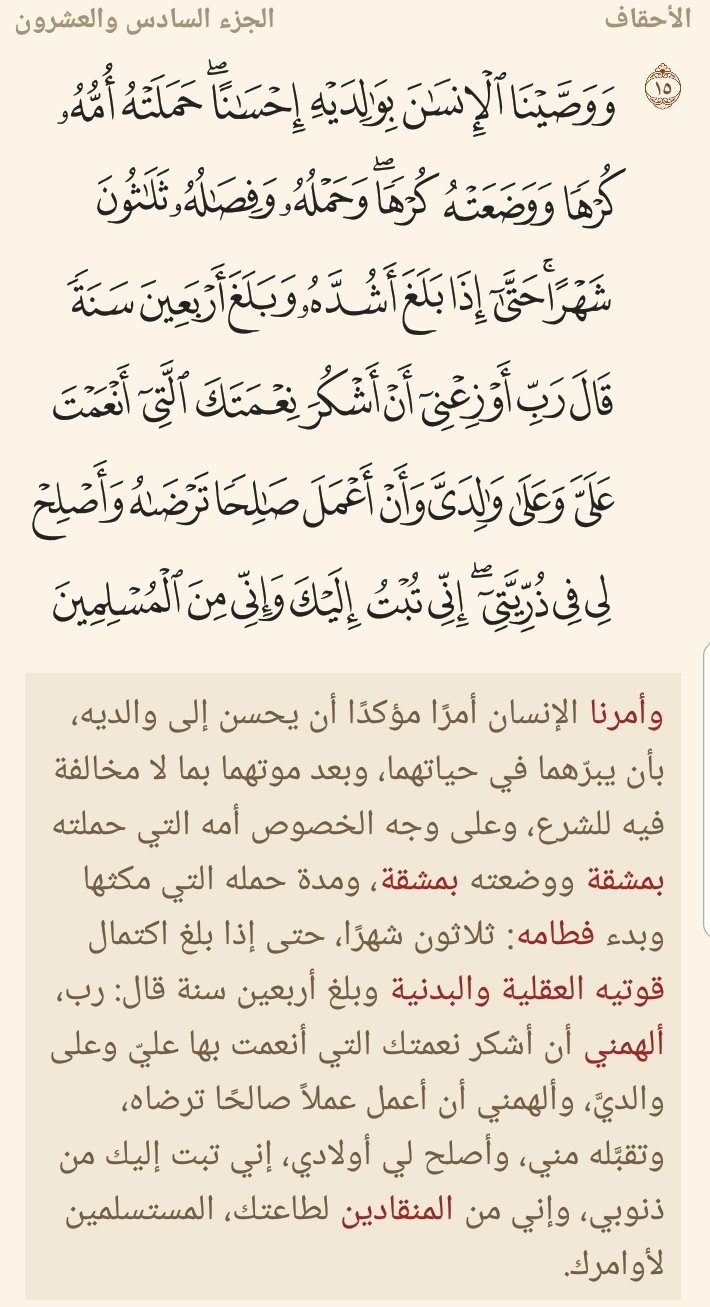 الأحقاف
الجزء السادس والعشرون
١٥
وَوَصَّيْنَا ٱلْإِنسَٰنَ بِوَٰلِدَيْهِ إِحْسَٰنًاۖ حَمَلَتْهُ أُمُّهُۥ
كُرْهًا وَوَضَعَتْهُ كُرْهًاۖ وَحَمْلُهُۥ وَفِصَٰلُهُۥ ثَلَٰثُونَ
شَهْرًاۚ حَتَّىٰٓ إِذَا بَلَغَ أَشُدَّهُۥ وَبَلَغَ أَرْبَعِينَ سَنَةً
قَالَ رَبِّ أَوْزِعْنِىٓ أَنْ أَشْكُرَ نِعْمَتَكَ ٱلَّتِىٓ أَنْعَمْتَ
عَلَىَّ وَعَلَىٰ وَٰلِدَىَّ وَأَنْ أَعْمَلَ صَٰلِحًا تَرْضَىٰهُ وَأَصْلِحْ
لِى فِى ذُرِّيَّتِىٓۖ إِنِّى تُبْتُ إِلَيْكَ وَإِنِّى مِنَ ٱلْمُسْلِمِينَ
وأمرنا الإنسان أمرًا مؤكدًا أن يحسن إلى والديه،
بأن يبرّهما في حياتهما، وبعد موتهما بما لا مخالفة
فيه للشرع، وعلى وجه الخصوص أمه التي حملته
بمشقة ووضعته بمشقة، ومدة حمله التي مكثها
وبدء فطامه: ثلاثون شهرًا، حتى إذا بلغ اكتمال
قوتيه العقلية والبدنية وبلغ أربعين سنة قال: رب،
ألهمني أن أشكر نعمتك التي أنعمت بها عليّ وعلى
والديَّ، وألهمني أن أعمل عملاً صالحًا ترضاه،
وتقبَّله مني، وأصلح لي أولادي، إني تبت إليك من
ذنوبي، وإني من المنقادين لطاعتك، المستسلمين
لأوامرك.